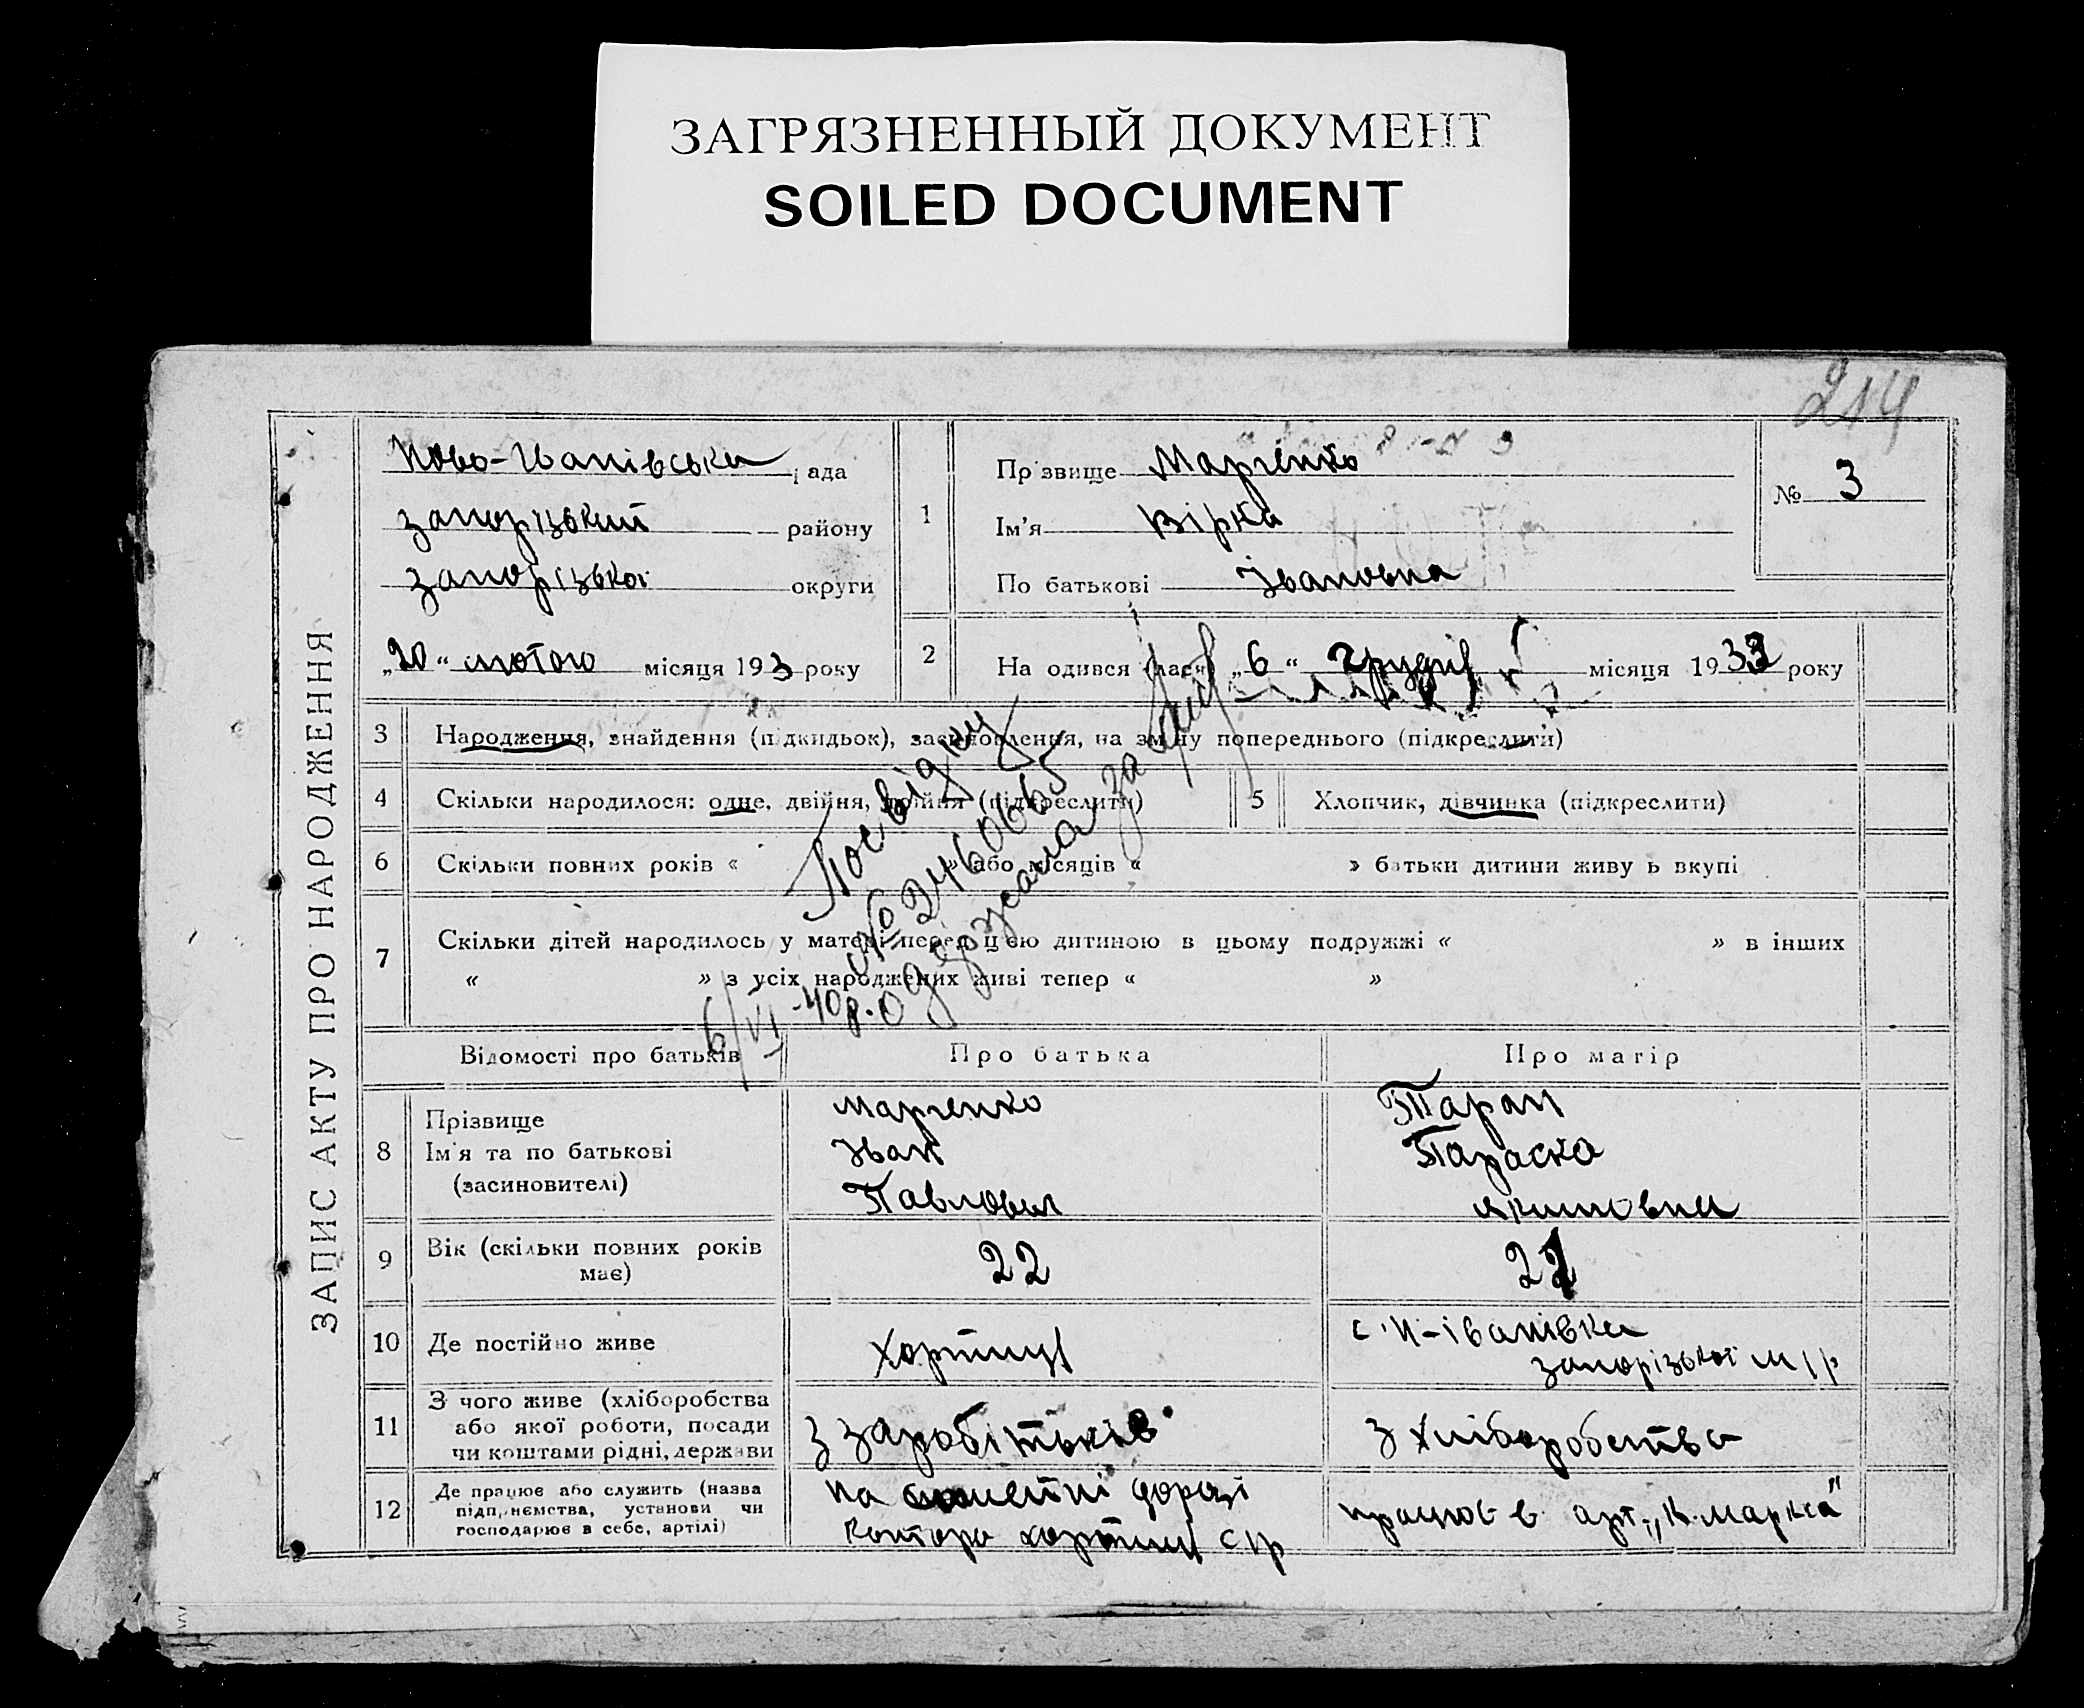 ЗАГРЯЗНЕННЫЙ ДОКУМЕНТ
SOILED DOCUMENT
214
ЗАПИС АКТУ ПРО НАРОДЖЕННЯ
Ново-Іванівська рада
запорізький району
запорізької округи
„20“ лютого місяця 193 3 року
1
Прізвище Марченко
Ім'я Вірка
По батькові Івановна
№ 3
2
На одився (лась) „6“ грудня місяця 1933 року
3 Народження, знайдення (підкидьок), засиновлення, на зміну попереднього (підкреслити)
4 Скільки народилося: одне, двійня, трійня (підкреслити)
5 Хлопчик, дівчинка (підкреслити)
6 Скільки повних років « » або місяців « » батьки дитини живу ь вкупі
7 Скільки дітей народилось у матері перед цією дитиною в цьому подружжі « » в інших
« » з усіх народжених живі тепер « »
Посвідку
№ 2460665
6/VI-40р. одержала за
Відомості про батьків
Про батька
Про матір
8 Прізвище
Ім'я та по батькові
(засиновителі)
Марченко
Іван
Павлович
Таран
Параска
Якимовна
9 Вік (скільки повних років
має)
22
10 Де постійно живе
Хортиця
с. Н-Іванівка
запорізької м/р
11 З чого живе (хліборобства
або якої роботи, посади
чи коштами рідні, держави
З заробітьків
З хліборобства
12 Де працює або служить (назва
підприємства, установи чи
господарює в себе, артілі)
на дорозі
хортиця с/р
працює в арт. „К. Маркса"